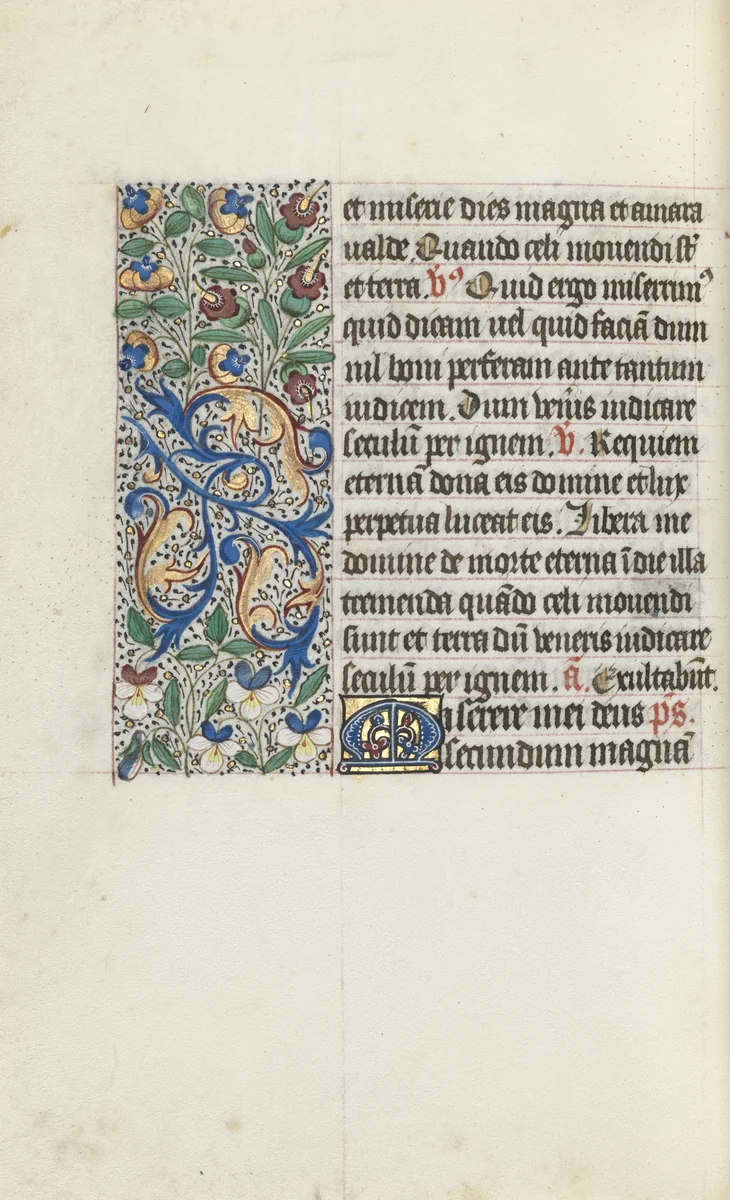 et miserie dies magna et amara
ualde. Quando celi mouendi st̄
et terra. v̄ꝰ Quid ergo miserrimꝰ
quid dicam uel quid faciā dum
nil boni perferam ante tantum
iudicem. Dum ven̄is iudicare
seculū per ignem. v̄. Requiem
eternā dona eis domine et lux
perpetua luceat eis. Libera me
domine de morte eterna ī die illa
tremenda quādo celi mouendi
sunt et terra dū veneris iudicare
seculū per ignem. ā. Exultabūt.
Miserere mei deus p̄s.
secundum magnā